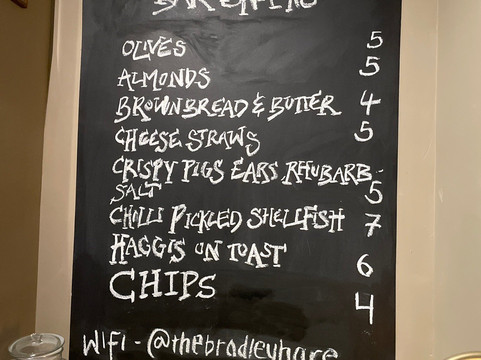 OLIVES 5
ALMONDS 5
BROWN BREAD & BUTTER 4
CHEESE STRAWS 5
CRISPY PIGS EARS RHUBARB
SALT 5
CHILLI PICKLED SHELLFISH 7
HAGGIS ON TOAST 6
CHIPS 4
WIFI - @thebradleyhare